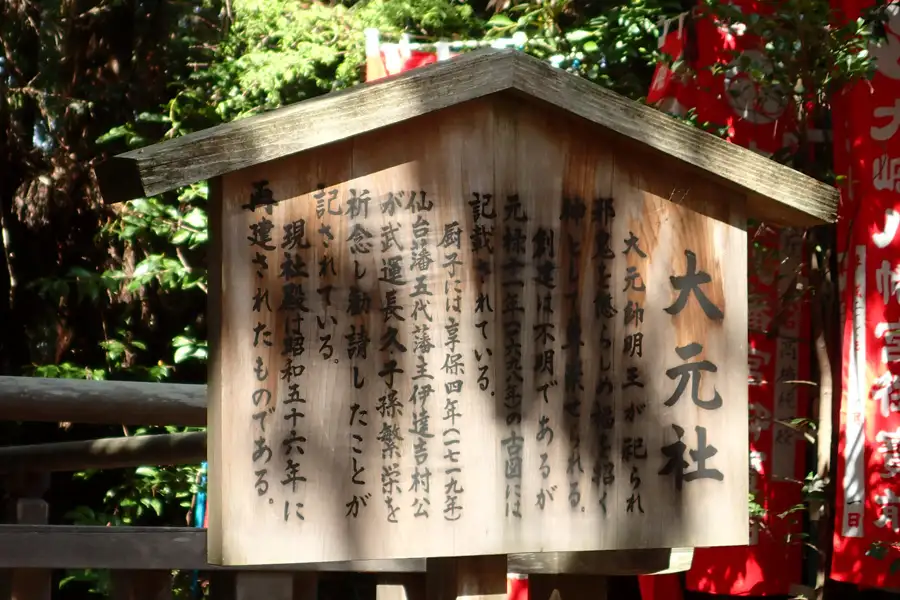 大元社
大元帥明王が祀られ
邪鬼を懲らしめ福を招く
神として尊崇せられる。
創建は不明であるが
元禄十一年(一六九八年)の古図には
記載されている。
厨子には享保四年(一七一九年)
仙台藩五代藩主伊達吉村公
が武運長久子孫繁栄を
祈念し勧請したことが
記されている。
現社殿は昭和五十六年に
再建されたものである。
大崎八幡宮